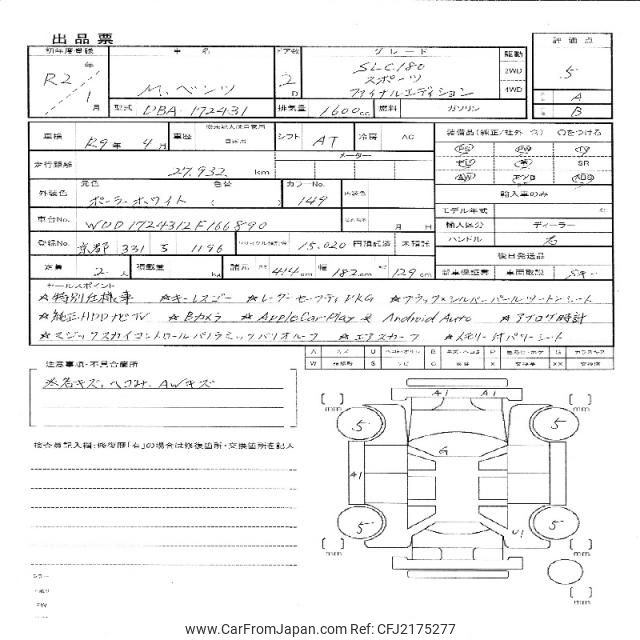 出品票
初年度登録 車名 ドア数 グレード 駆動 評価点
R2年 1月 M.ベンツ 2D SLC180 スポーツ ファイナルエディション 2WD 4WD 5
A
B
型式 DBA-172431 排気量 1600cc 燃料 ガソリン
車検 R9年 4月 車歴 シフト AT 冷房 AC 装備品(純正/社外 ) ○をつける
走行距離 27,932 km メーター SR
外装色 元色 ポーラーホワイト 色替 ( ) カラーNo. 149 輸入車のみ
車台No. WDD1724312F166890 月 日 モデル年式
輸入区分 ディーラー
登録No. 京都 331 さ 1196 15,020 円預託済 未預託 ハンドル 右
定員 2人 積載量 kg 諸元 長 414cm 幅 182cm 高 129cm 後日発送品
新車保証書 車間取説
セールスポイント
★特別仕様車 ★キーレスゴー ★レーダーセーフティPKG ★ブラック×シルバーパールツートンシート
★純正HDDナビTV ★Bカメラ ★Apple CarPlay & Android Auto ★アナログ時計
★マジックスカイコントロールパノラミックバリオルーフ ★エアスカーフ ★メモリー付パワーシート
注意事項・不具合箇所
各所キズ、ヘコみ、AWキズ
検査員記入欄:修復歴「有」の場合は修復箇所・交換箇所を記入
[ ] mm [ ] mm
A1 A1
5 5
G
A1
5 5
U1
[ ] mm [ ] mm
[ ] mm
www.CarFromJapan.com Ref: CFJ2175277